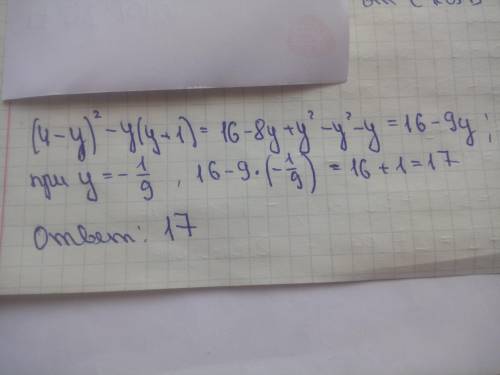 (4-y)² - y(y+1) = 16-8y+y²-y²-y = 16-9y;
при y = -1/9, 16-9·(-1/9) = 16+1=17
Ответ: 17